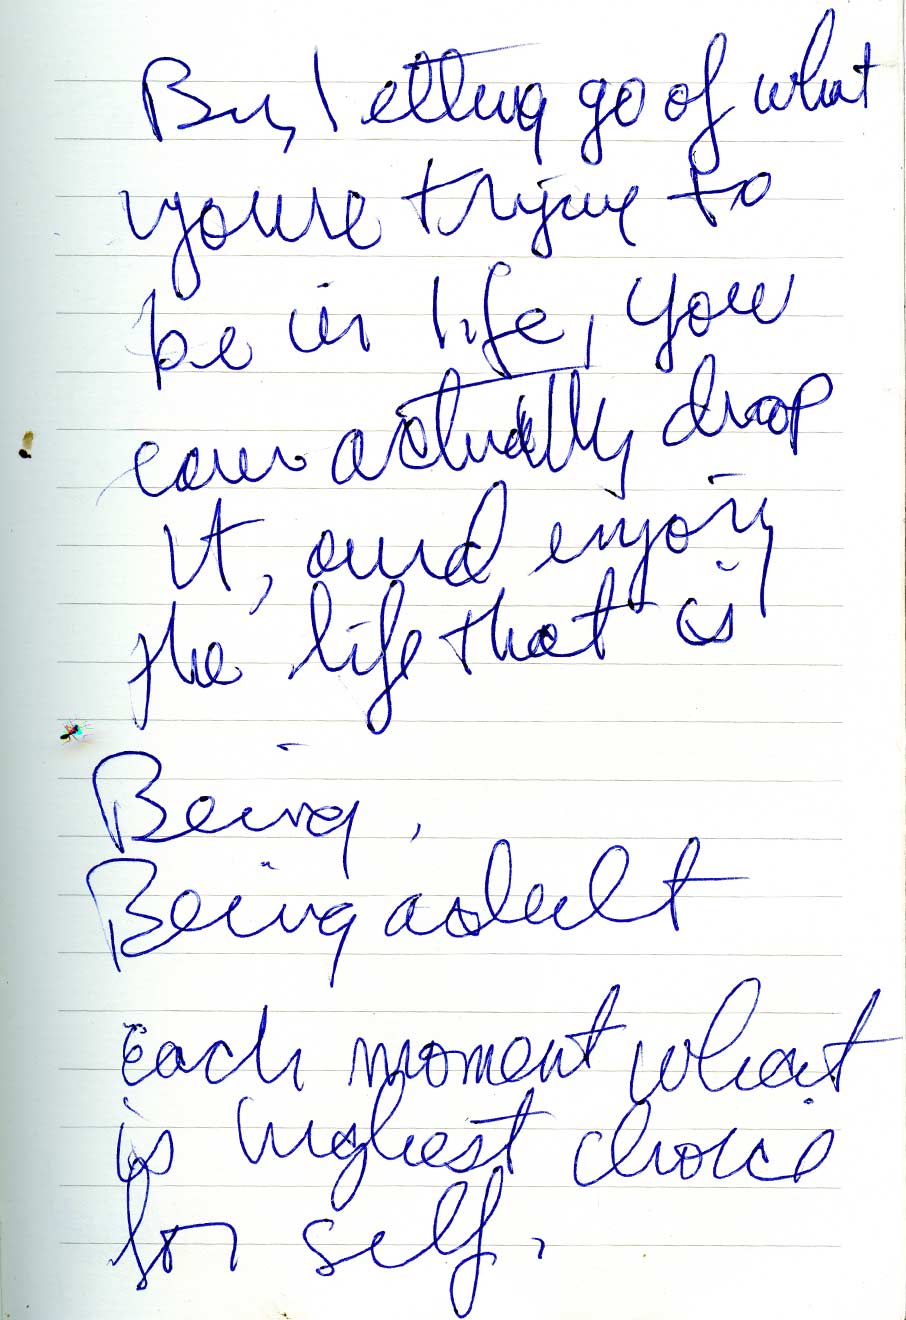 By letting go of what
youre trying to
be in life, you
can actually drop
it, and enjoy
the life that is
Being,
Being adult
each moment what
is highest choice
for self.